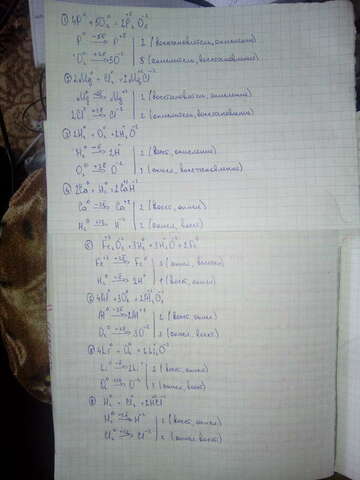 ① 4P⁰ + 5O₂⁰ = 2P₂⁺⁵O₅⁻²
P⁰ -5ē→ P⁺⁵ | 2 (восстановитель, окисление)
O₂⁰ +2ē→ O⁻² | 5 (окислитель, восстановление)
② 2Mg⁰ + Cl₂⁰ = 2Mg⁺²Cl⁻²
Mg⁰ → Mg⁺² | 2 (восстановитель, окисление)
2Cl⁰ → Cl⁻² | 2 (окислитель, восстановление)
③ 2H₂⁰ + O₂⁰ = 2H₂O⁻²
H₂⁰ → 2H⁺ | 2 (восст, окисление)
O₂⁰ +2ē→ O⁻² | 1 (окисл, восстановление)
④ 2Ca⁰ + H₂⁰ = 2CaH⁻¹
Ca⁰ → Ca⁺² | 2 (восст, окисл)
H₂⁰ → H⁻¹ | 2 (окисл, восст)
⑤ Fe₂⁺³O₃ + 3H₂⁰ = 3H₂O⁻² + 2Fe⁰
Fe⁺³ +3ē→ Fe⁰ | 2 (окисл, восстан)
H₂⁰ → 2H⁺ | (восст, окисл)
⑥ 4Al⁰ + 3O₂⁰ = 2Al₂O₃
Al⁰ → 2Al⁺³ | 2 (восст, окисл)
O₂⁰ → 3O⁻² | 3 (окисл, восст)
⑦ 4Li⁰ + O₂⁰ = 2Li₂O⁻²
Li⁰ → 2Li⁺ | 2 (восст, окисл)
O₂⁰ → O⁻² | 1 (окисл, восст)
⑧ H₂⁰ + Cl₂⁰ = 2HCl⁻¹
H₂⁰ → H⁺² | 2 (восст, окисл)
Cl₂⁰ → Cl⁻² | 2 (окисл, восст)